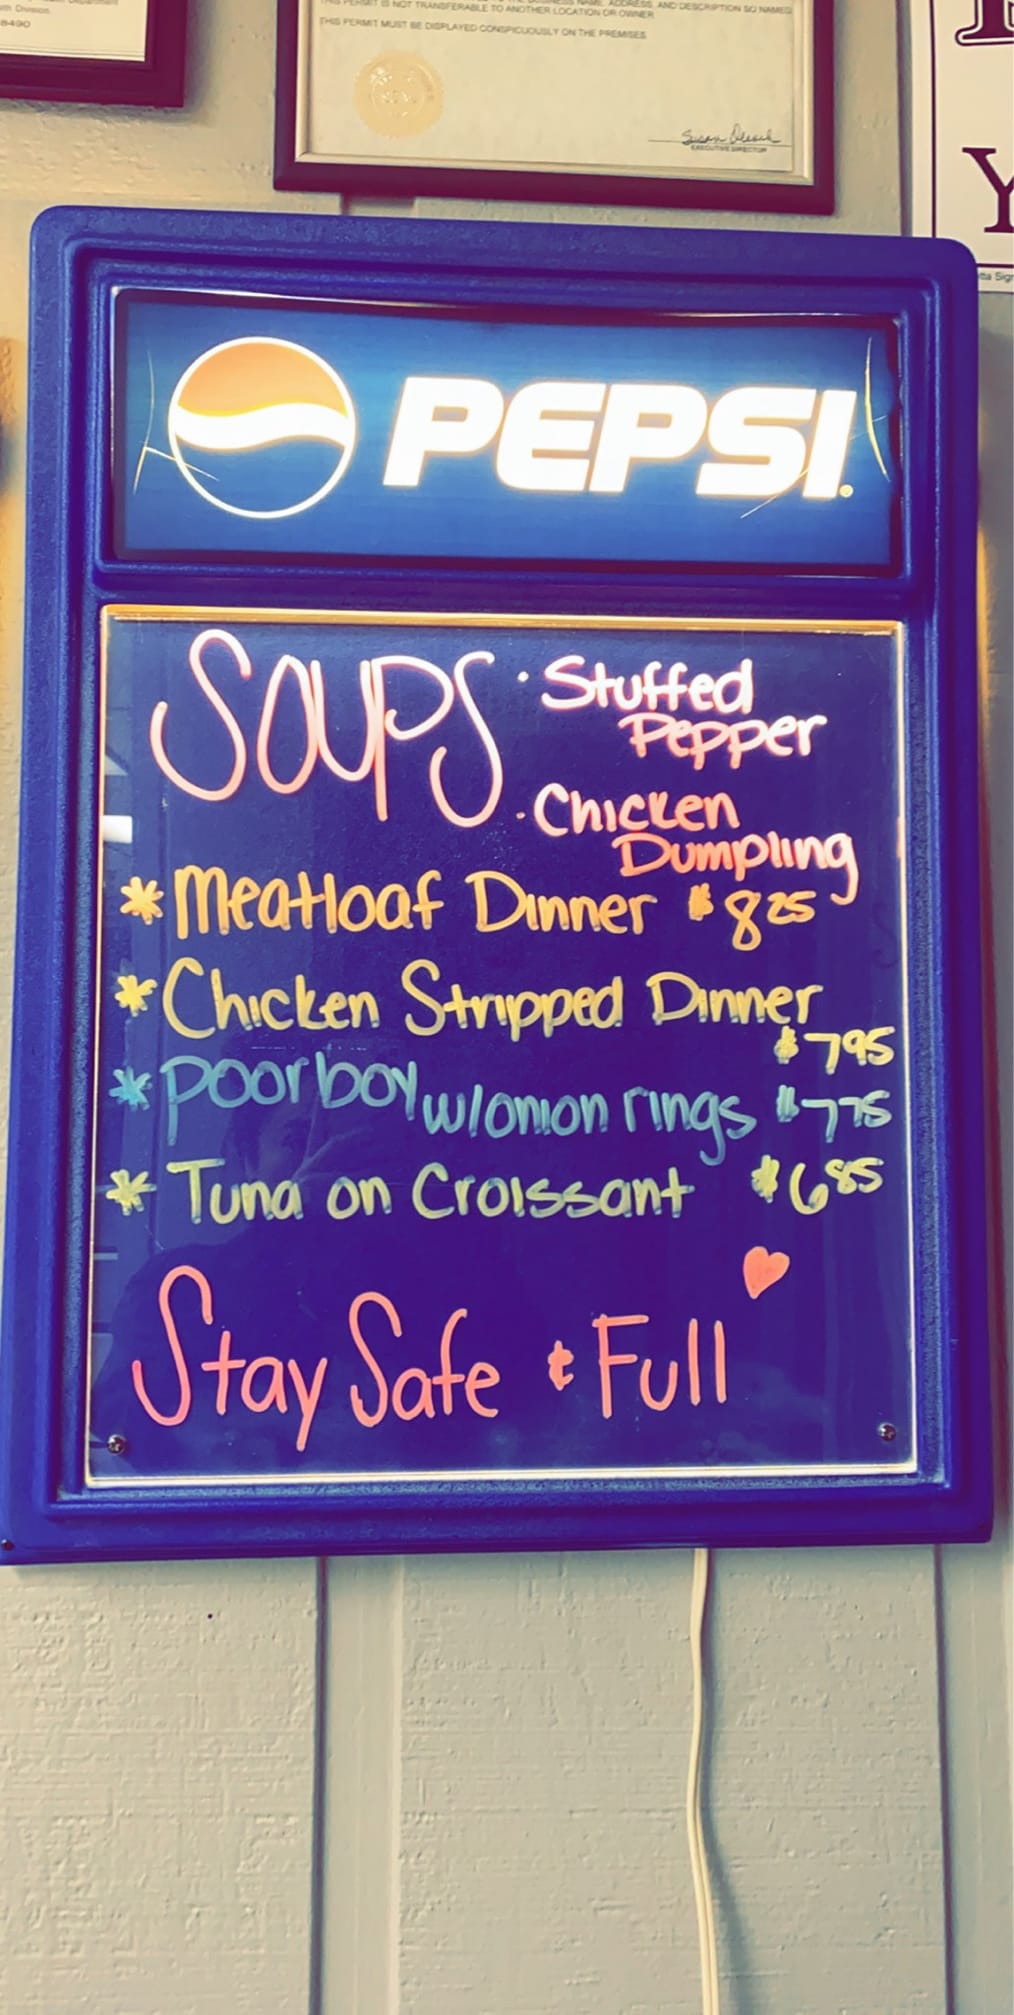 8490
THIS PERMIT IS NOT TRANSFERABLE TO ANOTHER LOCATION OR OWNER
THIS PERMIT MUST BE DISPLAYED CONSPICUOUSLY ON THE PREMISES
EXECUTIVE DIRECTOR
Y
PEPSI
SOUPS · Stuffed
Pepper
· Chicken
Dumpling
* Meatloaf Dinner $825
* Chicken Stripped Dinner
$795
* Poorboy w/onion rings $775
* Tuna on Croissant $685
Stay Safe & Full